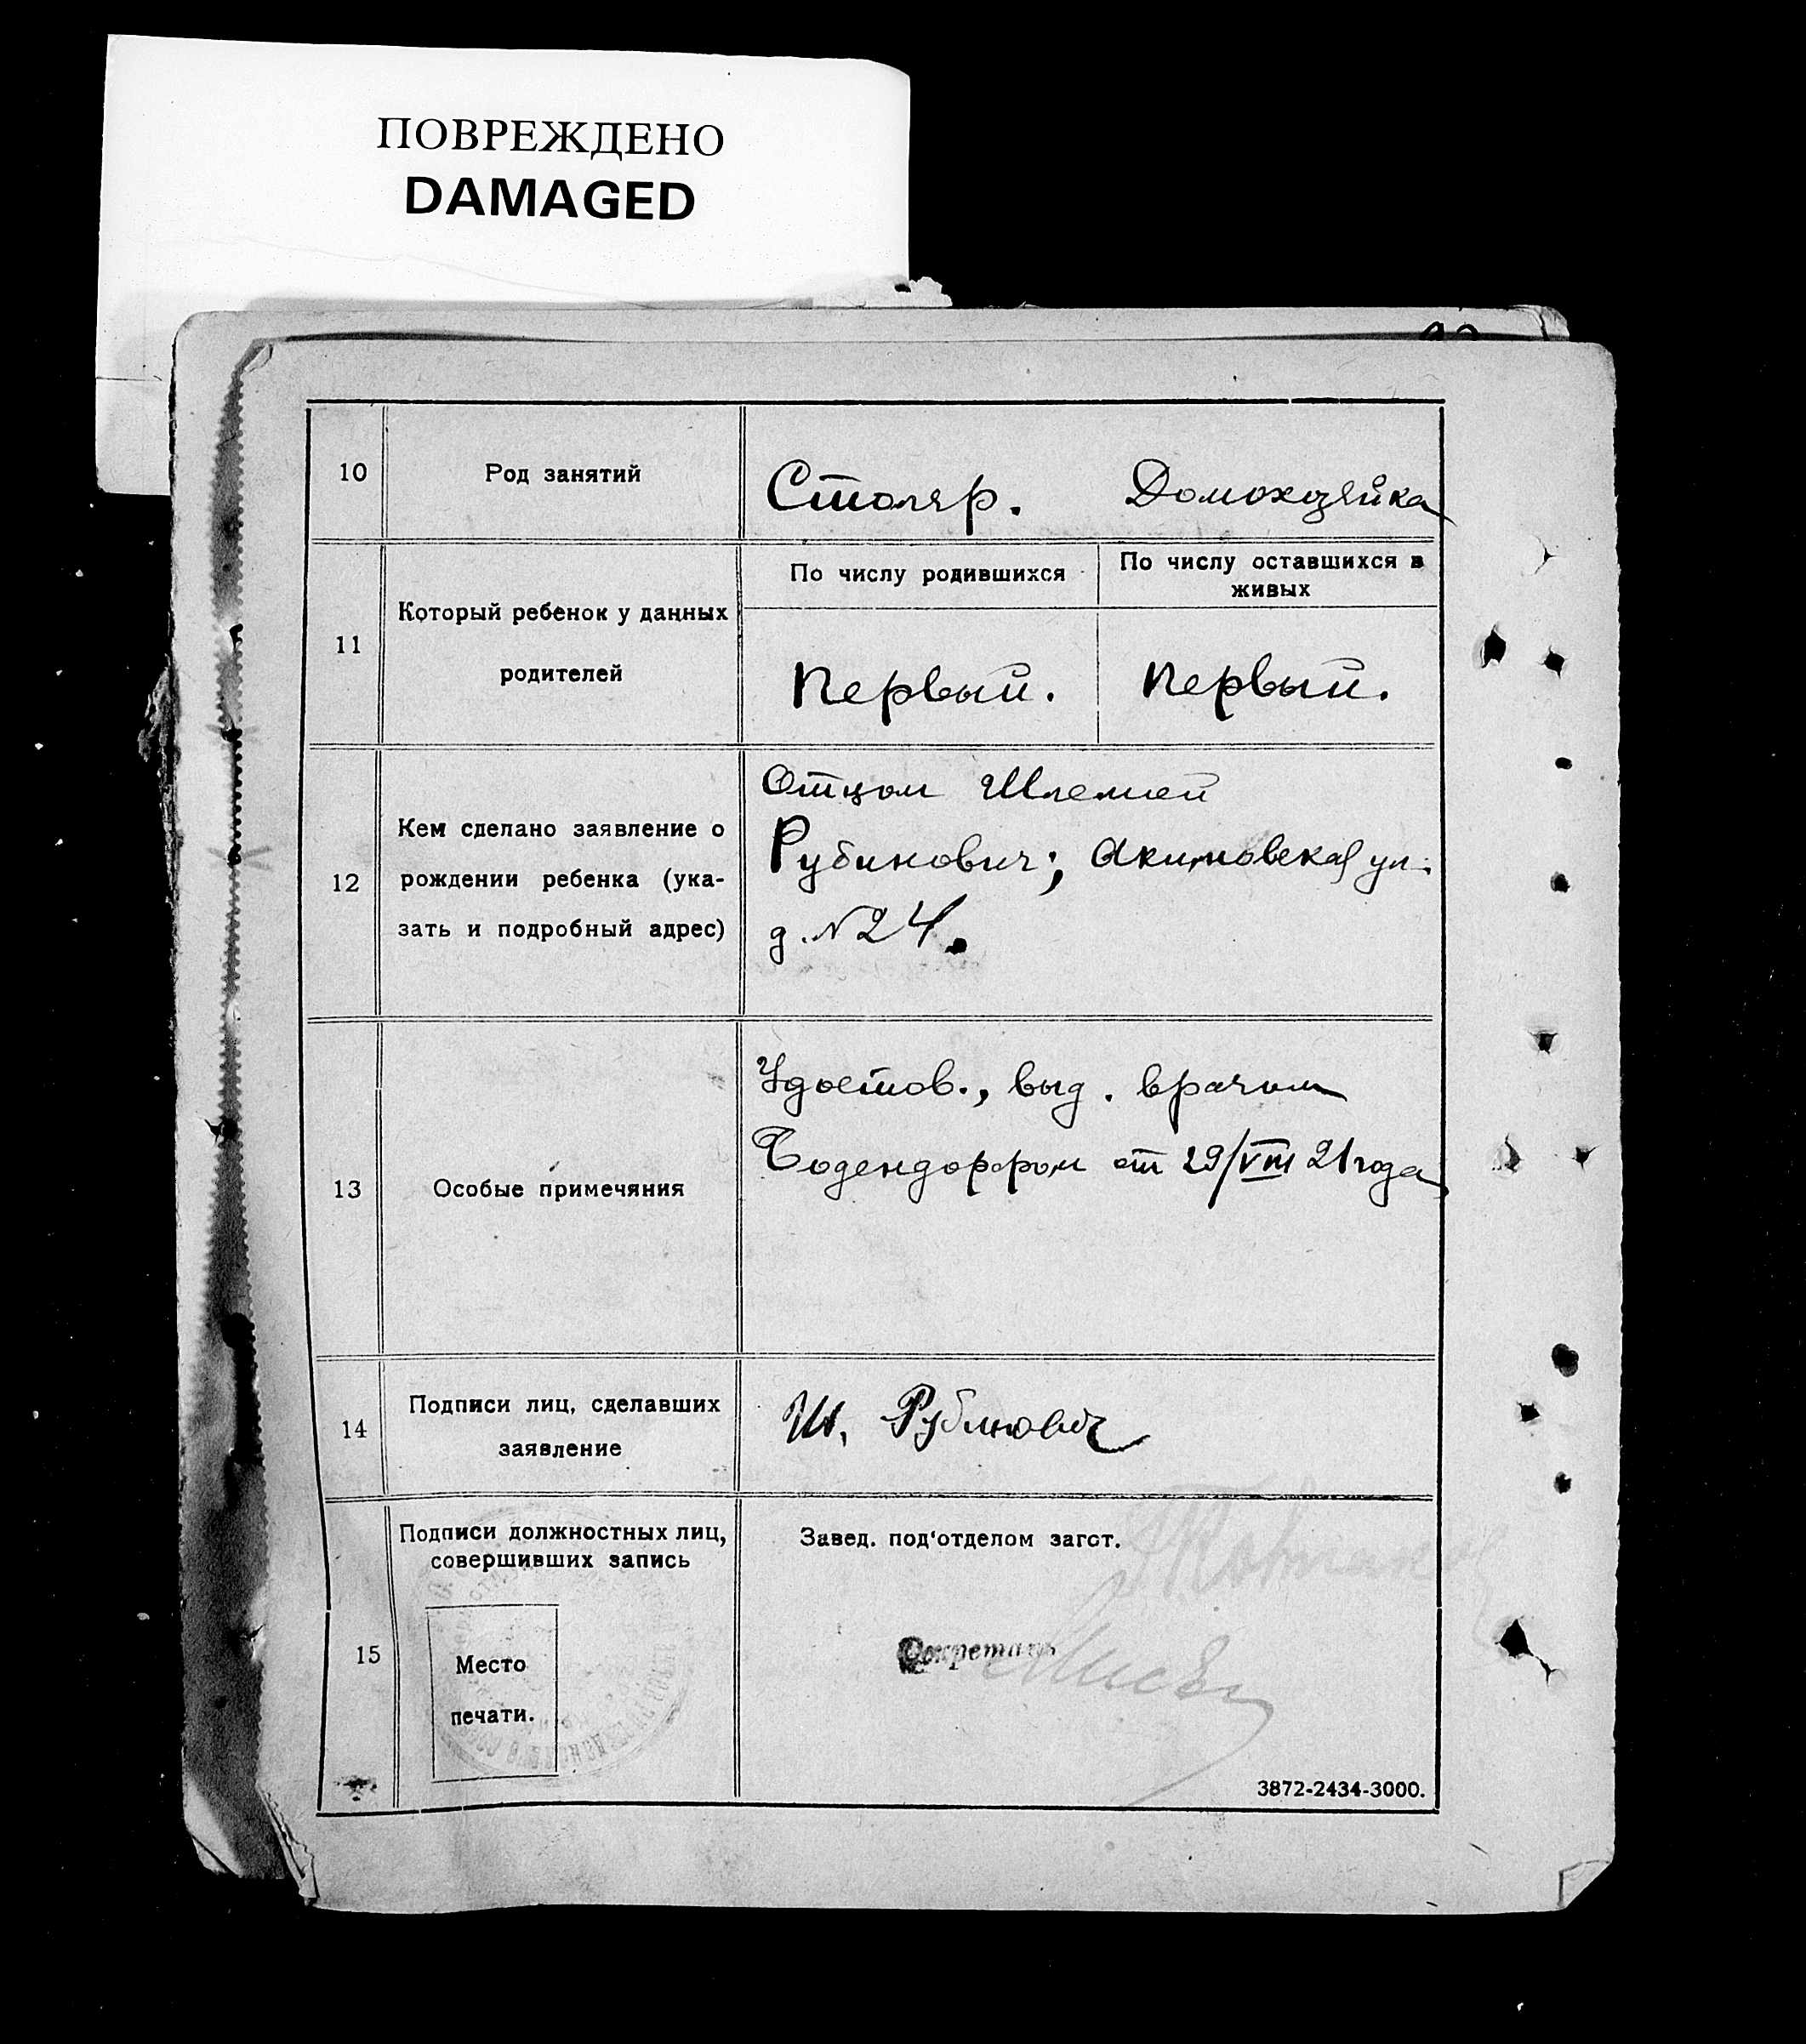 ПОВРЕЖДЕНО
DAMAGED
10
Род занятий
Столяр.
Домохозяйка
11
Который ребенок у данных
родителей
По числу родившихся
По числу оставшихся в
живых
Первый.
Первый.
12
Кем сделано заявление о
рождении ребенка (ука-
зать и подробный адрес)
Отцом Шлемой
Рубинович; Акимовская ул.
д. №24.
13
Особые примечяния
Удостов., выд. врачом
Бодендорфом от 29/VIII 21 года
14
Подписи лиц, сделавших
заявление
Ш. Рубинович
15
Подписи должностных лиц,
совершивших запись
Место
печати.
Завед. под'отделом загст.
Секретарь
3872-2434-3000.